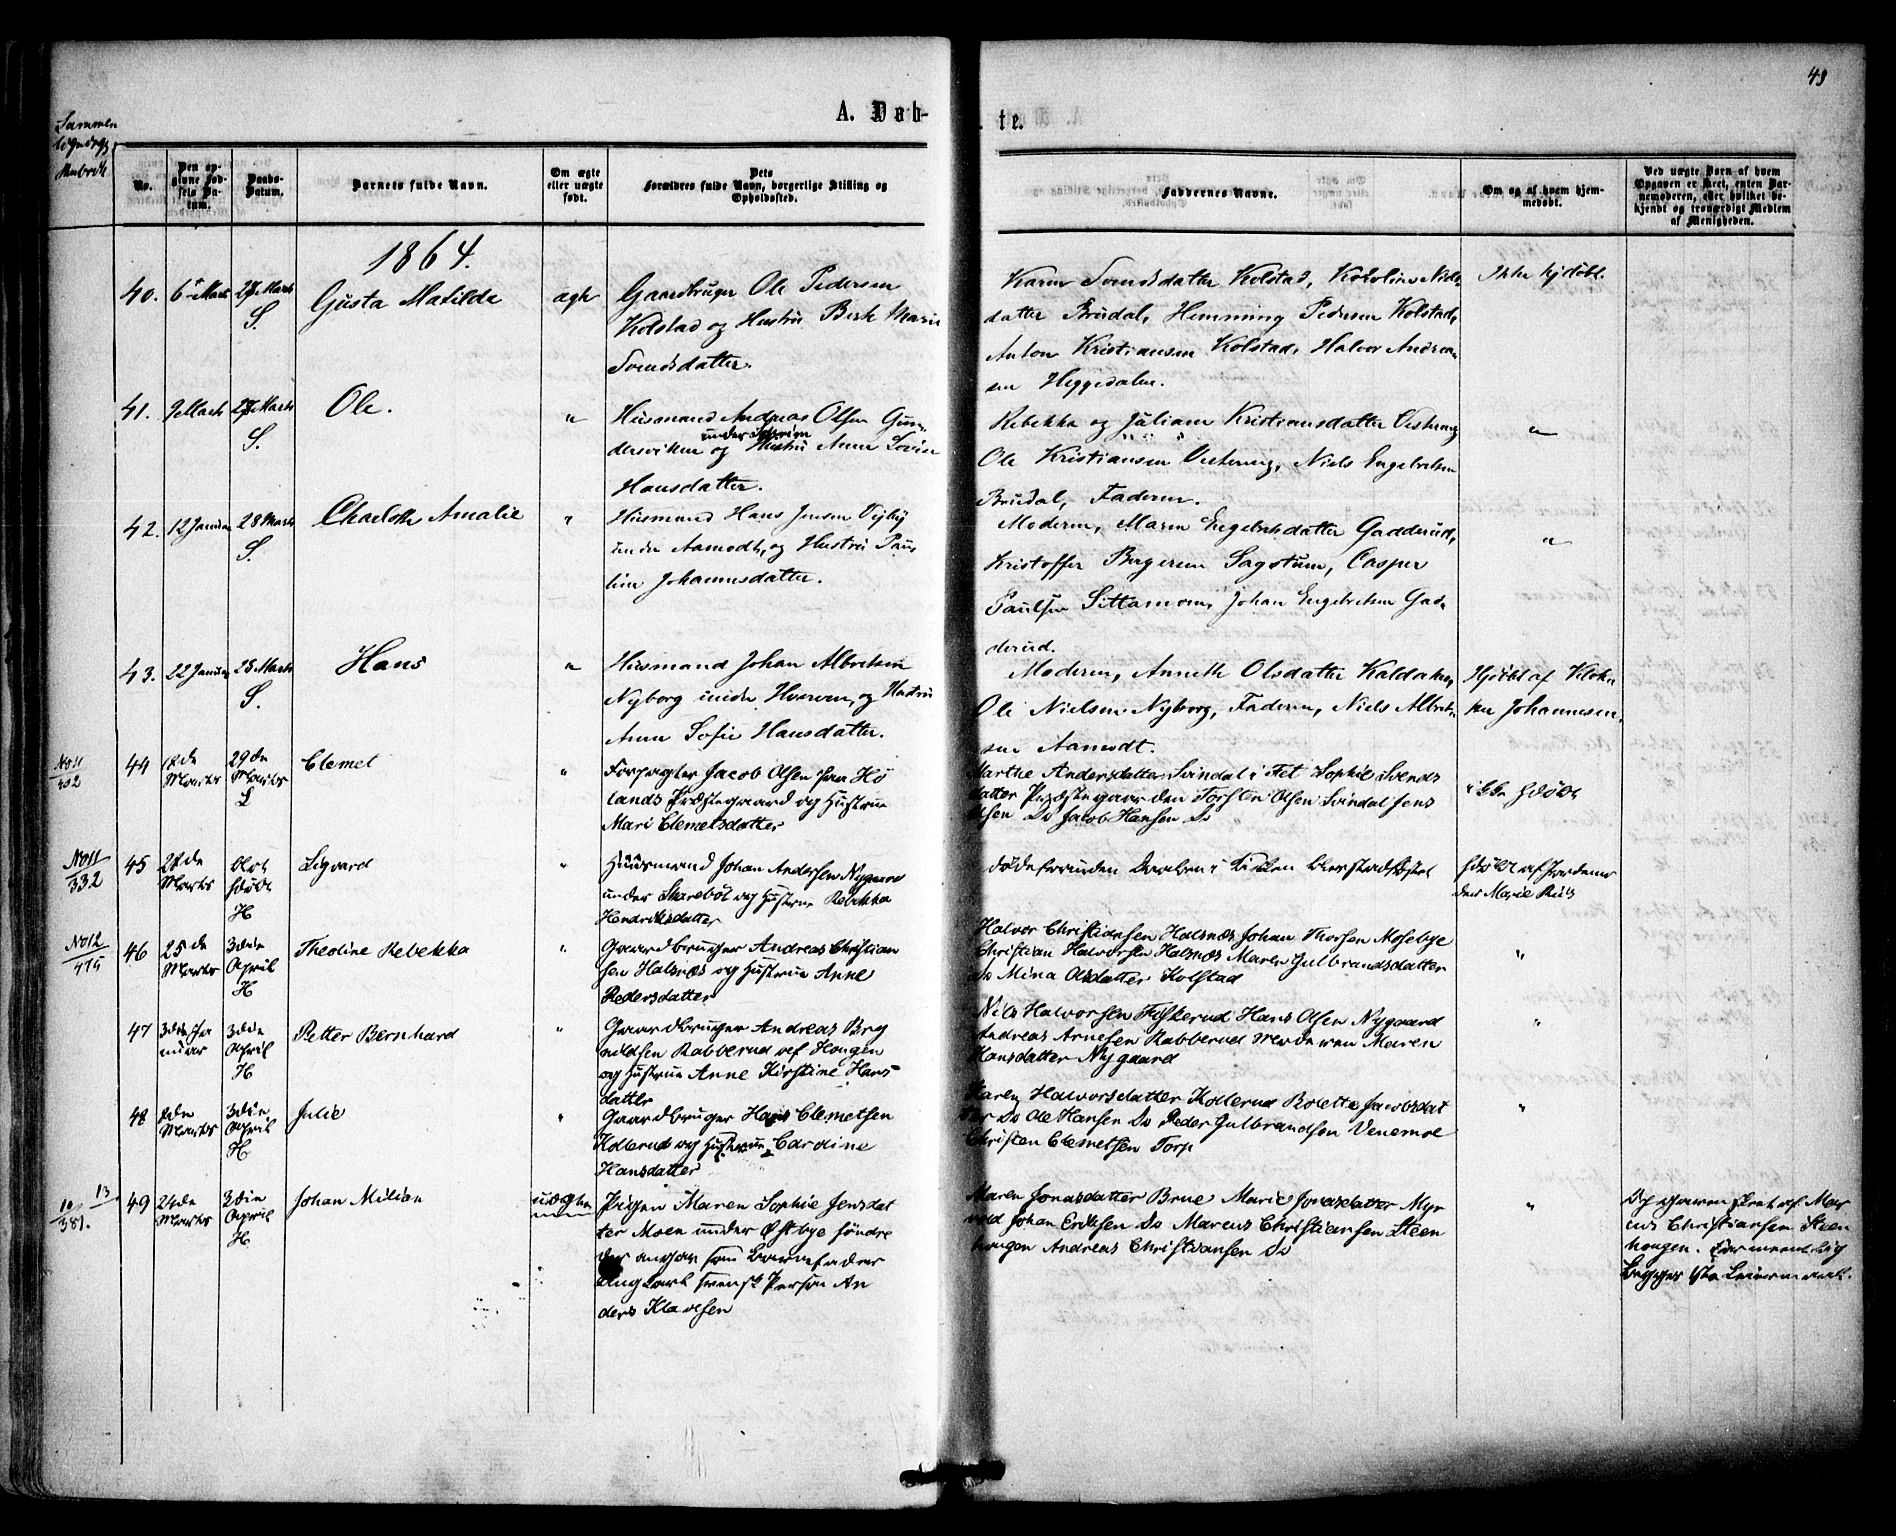 49
A. Døb-
te.
Sammen
No.
Den op-
givne Fød-
sels Da-
tum.
Daabs-
Datum.
Barnets fulde Navn.
Om ægte
eller uægte
født.
Dets
Forældres fulde Navn, borgerlige Stilling og
Opholdssted.
Faddernes Navne.
Om og af hvem hjem-
medøbt.
Ved uægte Børn af hvem
Opgaven er skeet, enten Bar-
nemoderen, eller hvilket be-
kjendt og troværdigt Medlem
af Menigheden.
1864.
40. 6te Marts 27 Marts S. Gusta Matilde ægte
Gaardbruger Ole Pedersen
Kolstad og Hustru Berte Marie
Svendsdatter.
Karen Svendsdatter Kolstad, Karoline Niels-
datter Brudal, Hemming Pedersen Kolstad,
Anton Kristiansen Kolstad, Halvor Andrea-
sen Heggedalen.
Ikke hjdøbt.
41. 9 Marts 27 Marts S. Ole. "
Husmand Andreas Olsen Gun-
dersviken og Hustru Anne Lovise
Hansdatter.
Rebekka og Juliane Kristiansdatter Vestreng
Ole Kristiansen Vestreng, Niels Engebretsen
Brudal, Faderen.
"
42. 12 Januar 28 Marts S. Charlotte Amalie "
Husmand Hans Jensen Vigby
under Aamodt, og Hustru Pau-
line Johannesdatter.
Moderen, Maren Engebretsdatter Gadderud,
Kristoffer Bergersen Sagstuen, Casper
Paulsen Sittamoen, Johan Engebretsen Gad-
derud.
"
43. 22 Januar 28 Marts S. Hans "
Husmand Johan Albretsen
Nyborg under Hverven, og Hustru
Anne Sofie Hansdatter.
Moderen, Annette Olsdatter Kaldaker,
Ole Nielsen Nyborg, Faderen, Niels Albret-
sen Aamodt.
Hjdøbt af Klok-
ker Johannesen.
No 11
402
44 18de Marts 29de Marts L Clemet "
Forpagter Jacob Olsen paa Hø
lands Præstegaard og Hustrue
Mari Clemetsdatter
Marthe Andersdatter Svindal i Fet Sophie Svends
datter Præstegaarden Torsten Olsen Svindal Jens
Olsen Do Jacob Hansen Do
ikke hdøbt
No 11
332
45 22de Marts blot hdøbt H Sigvard "
Huusmand Johan Andersen Nygaard
under Skarebøl og Hustrue Rebekka
Hendriksdatter
døde forinden Daaben i Kirken
hdøbt af Jordemo
der Marie
No 12
475
46 25de Marts 3die April H Theoline Rebekka "
Gaardbruger Andreas Christian
sen Halsnæs og Hustrue Anne
Pedersdatter
Halvor Christiansen Halsnæs Johan Thorsen Mosebye
Christian Halvorsen Halsnæs Maren Gulbrandsdatter
Do Mina Olsdatter Kolstad
"
47 3die Januar 3die April H Petter Bernhard "
Gaardbruger Andreas Bry
nildsen Rabberud vef Hougen
og Hustrue Anne Kirstine Hans
datter
Nils Halvorsen Fiskerud Hans Olsen Nygaard
Andreas Arnesen Rabberud Moderen Maren
Hansdatter Nygaard
"
48 2den Marts 3die April H Julie "
Gaardbruger Hans Clemetsen
Kollerud og Hustrue Caroline
Hansdatter
Karen Halvorsdatter Kollerud Bolette Jacobsdat
ter Do Ole Hansen Do Peder Gulbrandsen Venemoe
Christen Clemetsen Torp
"
13
10
381.
49 24de Marts 3die April H Johan Milian uægte
Pigen Maren Sophie Jensdat
ter Moen under Østbye søndre
der angav som Barnefader
svensk Person An
ders Klavesen
Maren Jonasdatter Brue Marie Jonasdatter Myr
vold Johan Eriksen Do Marcus Christiansen Steen
hougen Andreas Christiansen Do
"
Opgaven skeet af Mar
cus Christiansen Steen
hougen. Formeentlig
Begges 1ste Leiermaal.